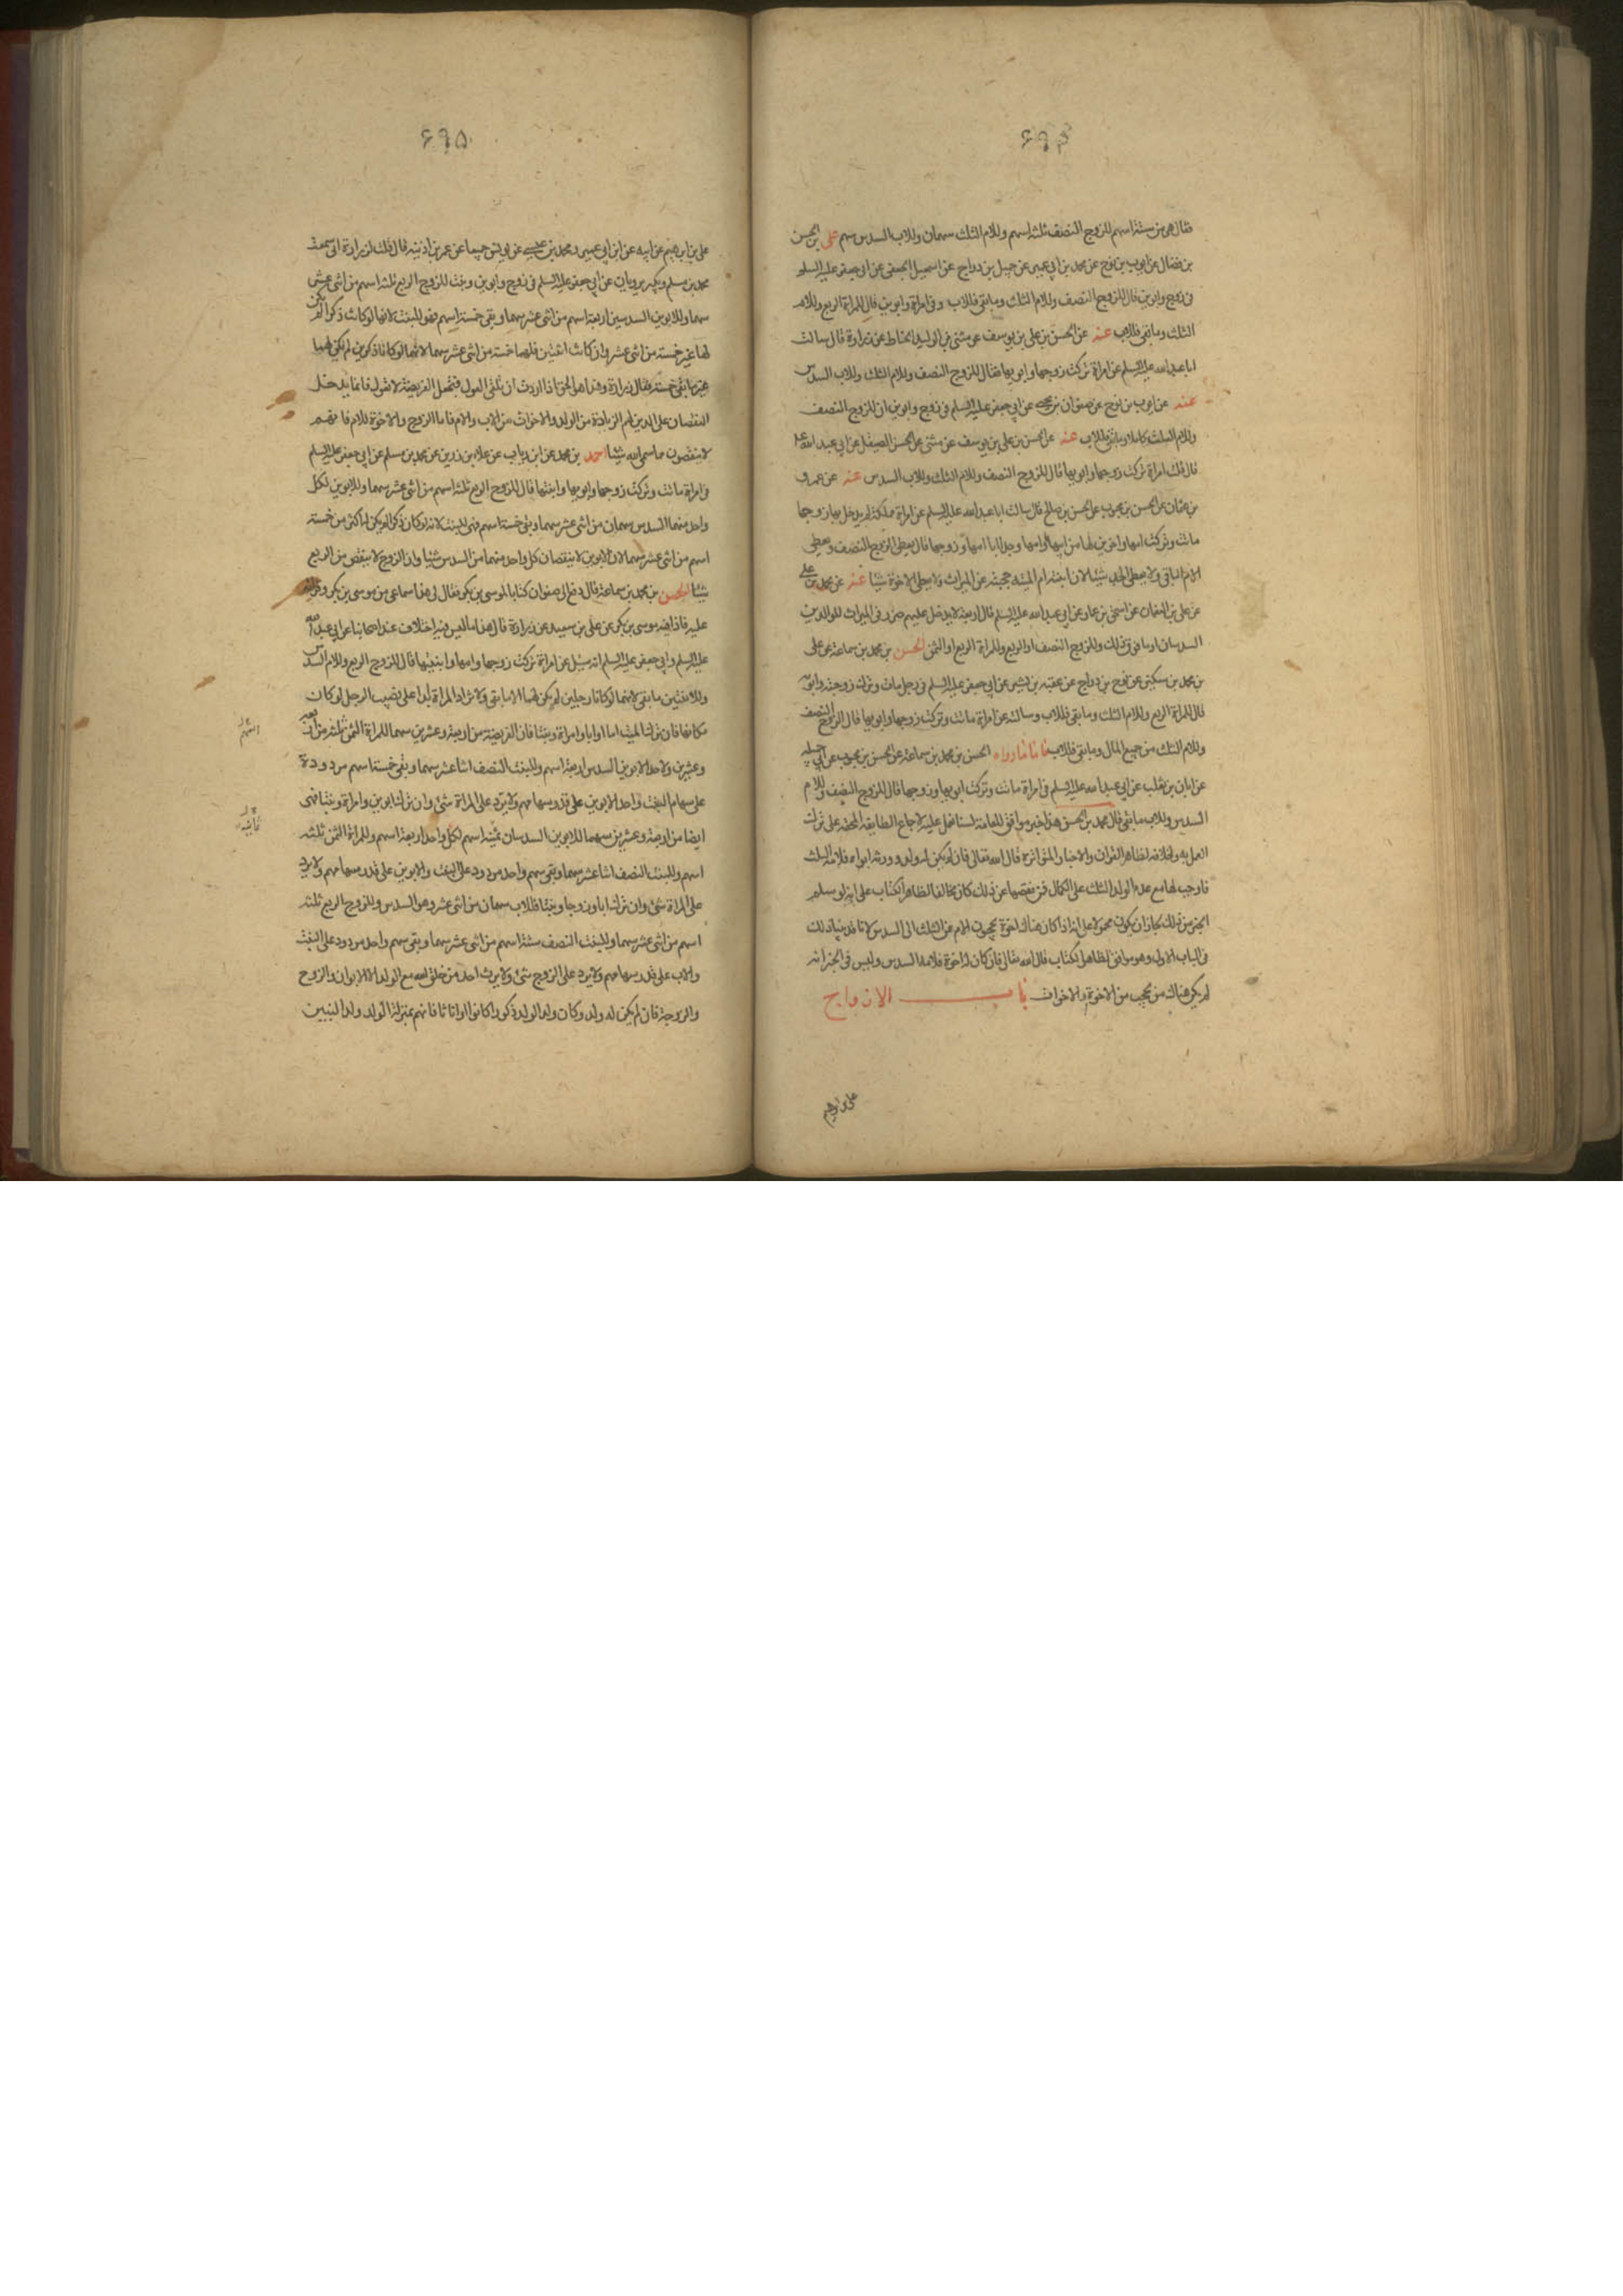 ۶۹۴
فقال هى من ستة اسهم للزوج النصف ثلثة اسهم وللام الثلث سهمان وللاب السدس سهم على بن الحسن
بن فضال عن ايوب بن نوح عن محمد بن ابى عمير عن جميل بن دراج عن اسمعيل الجعفى عن ابى جعفر عليه السلم
فى زوج وابوين قال للزوج النصف وللام الثلث ومابقى فللاب وفى امراة وابوين قال للمراة الربع وللام
الثلث ومابقى فللاب عنه عن الحسن بن على بن يوسف عن مثنى بن الوليد الحناط عن زرارة قال سالت
ابا عبدالله عليه السلم عن امراة تركت زوجها وابويها فقال للزوج النصف وللام الثلث وللاب السدس
عنه عن ايوب بن نوح عن صفوان بن يحيى عن ابى جعفر عليه السلم فى زوج وابوين ان للزوج النصف
وللام الثلث كاملا ومابقى فللاب عنه عن الحسن بن على بن يوسف عن مثنى عن الحسن الصيقل عن ابى عبد الله عليه
قال قلت امراة تركت زوجها وابويها قال للزوج النصف وللام الثلث وللاب السدس عنه عن عمرو
بن عثمان عن الحسن بن محبوب عن الحسن بن صالح قال سالت ابا عبد الله عليه السلم عن امراة مملكة لم يدخل بها زوجها
ماتت وتركت امها واخوين لها من ابيها وامها وجدا ابا امها وزوجها قال يعطى الزوج النصف ويعطى
الام الباقى ولا يعطى الجد شيئا لان ابنته ام الميتة حجبته عن الميراث ولا يعطى الاخوة شيئا عنه عن محمد بن على
عن على بن النعمان عن اسحق بن عمار عن ابى عبد الله عليه السلم قال اربعة لا يدخل عليهم ضرر فى الميراث للوالدين
السدسان او ما فوق ذلك وللزوج النصف او الربع وللمراة الربع او الثمن الحسن بن محمد بن سماعة عن على
بن محمد بن سكين عن نوح بن دراج عن عقبة بن بشير عن ابى جعفر عليه السلم فى رجل مات وترك زوجته وابويه
قال للمراة الربع وللام الثلث ومابقى فللاب وسالته عن امراة ماتت وتركت زوجها وابويها قال للزوج النصف
وللام الثلث من جميع المال ومابقى فللاب فاما مارواه الحسن بن محمد بن سماعة عن الحسن بن محبوب عن ابى جميلة
عن ابان بن تغلب عن ابى عبد الله عليه السلم فى امراة ماتت وتركت ابويها وزوجها قال للزوج النصف وللام
السدس وللاب مابقى قال محمد بن الحسن هذا خبر موافق للعامة لسنا نعمل عليه لاجماع الطايفة المحقة على ترك
العمل به ولخلافه لظاهر القران والاخبار المتواترة قال الله تعالى فان لم يكن له ولد وورثه ابواه فلامه الثلث
فاوجب لها مع عدم الولد الثلث على الكمال فمن نقصها عن ذلك كان مخالفا لظاهر الكتاب على انه لو سلم
الخبر من ذلك لجاز ان يكون محمولا على انه اذا كان هناك اخوة يحجبون الام عن الثلث الى السدس لانا قد بينا ذلك
فى الباب الاول وهو موافق لظاهر الكتاب قال الله تعالى فان كان له اخوة فلامه السدس وليس فى الخبر انه
لم يكن هناك من يحجب من الاخوة والاخوات باب الازواج
على بن ابراهيم
۶۹۵
على بن ابراهيم عن ابيه عن ابن ابى عمير ومحمد بن عيسى عن يونس جميعا عن عمر بن اذينة قال قلت لزرارة انى سمعت
محمد بن مسلم وبكير يرويان عن ابى جعفر عليه السلم فى زوج وابوين وبنت للزوج الربع ثلثة اسهم من اثنى عشر
سهما وللابوين السدسين اربعة اسهم من اثنى عشر سهما وبقى خمسة اسهم فهو للبنت لانها لو كانت ذكرا لم يكن
لها غير خمسة من اثنى عشر وان كانت اثنتين فلهما خمسة من اثنى عشر سهما لانهما لو كانا ذكرين لم يكن لهما
غير مابقى خمسة فقال زرارة وهذا هو الحق اذا اردت ان تلقى العول فتجعل الفريضة لا تعول فانما يدخل
النقصان على الذين لهم الزيادة من الولد والاخوات من الاب والام فاما الزوج والاخوة للام فانهم
لا ينقصون مما سمى الله شيئا احمد بن محمد عن ابن رياب عن علا بن رزين عن محمد بن مسلم عن ابى جعفر عليه السلم
فى امراة ماتت وتركت زوجها وابويها وابنتها قال للزوج الربع ثلثة اسهم من اثنى عشر سهما وللابوين لكل
واحد منهما السدس سهمان من اثنى عشر سهما وبقى خمسة اسهم فهى للبنت لانه لو كان ذكرا لم يكن له اكثر من خمسة
اسهم من اثنى عشر سهما لان الابوين لا ينقصان كل واحد منهما من السدس شيئا وان الزوج لا ينقص من الربع
شيئا الحسن بن محمد بن سماعة قال دفع الى صفوان كتابا لموسى بن بكر فقال لى هذا سماعى من موسى بن بكر وقراته
عليه فاذا فيه موسى بن بكر عن على بن سعيد عن زرارة قال هذا مما ليس فيه اختلاف عند اصحابنا عن ابى عبد الله
عليه السلم وابى جعفر عليه السلم انه سئل عن امراة تركت زوجها وامها وابنتيها قال للزوج الربع وللام السدس
وللابنتين مابقى لانهما لو كانا رجلين لم يكن لهما الا مابقى ولا تزاد المراة ابدا على نصيب الرجل لو كان
مكانها فان ترك الميت اما او ابا وامراة وبنتا فان الفريضة من اربعة وعشرين سهما للمراة الثمن ثلثة من اربعة
وعشرين ولاحد الابوين السدس اربعة اسهم وللبنت النصف اثنا عشر سهما وبقى خمسة اسهم مردودة
على سهام البنت واحد الابوين على قدر سهامهم ولا يرد على المراة شئ وان ترك ابوين وامراة وبنتا فهى
ايضا من اربعة وعشرين سهما للابوين السدسان ثمنية اسهم لكل واحد اربعة اسهم وللمراة الثمن ثلثة
اسهم وللبنت النصف اثنا عشر سهما وبقى سهم واحد مردود على البنت والابوين على قدر سهامهم ولا يرد
على المراة شئ وان ترك ابا وزوجا وبنتا فللاب سهمان من اثنى عشر وهو السدس وللزوج الربع ثلثة
اسهم من اثنى عشر سهما وللبنت النصف ستة اسهم من اثنى عشر سهما وبقى سهم واحد مردود على البنت
والاب على قدر سهامهم ولا يرد على الزوج شئ ولا يرث احد من خلق الله مع الولد الا الابوان والزوج
والزوجة فان لم يكن له ولد وكان ولد الولد ذكورا كانوا او اناثا فانهم بمنزلة الولد ولد البنين